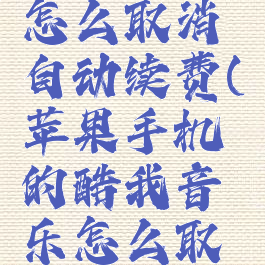 怎么取消
自动续费(
苹果手机
的酷我音
乐怎么取